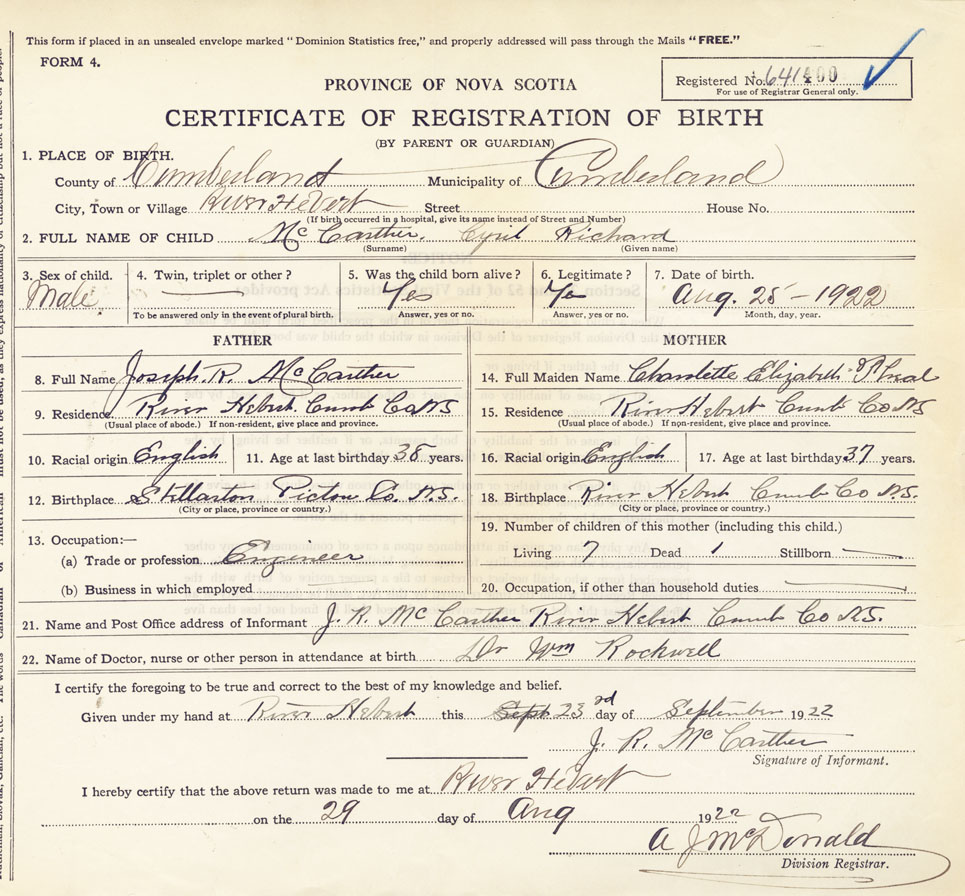 This form if placed in an unsealed envelope marked "Dominion Statistics free," and properly addressed will pass through the Mails "FREE."
FORM 4.
PROVINCE OF NOVA SCOTIA
Registered No. 641400
For use of Registrar General only.
CERTIFICATE OF REGISTRATION OF BIRTH
(BY PARENT OR GUARDIAN)
1. PLACE OF BIRTH.
County of Cumberland Municipality of Cumberland
City, Town or Village River Hebert Street House No.
(If birth occurred in a hospital, give its name instead of Street and Number)
2. FULL NAME OF CHILD McCarther. Cyril Richard
(Surname) (Given name)
3. Sex of child. 4. Twin, triplet or other? 5. Was the child born alive? 6. Legitimate? 7. Date of birth.
Male — Yes Yes Aug. 25 - 1922
To be answered only in the event of plural birth. Answer, yes or no. Answer, yes or no. Month, day, year.
FATHER MOTHER
8. Full Name Joseph. R. McCarther 14. Full Maiden Name Charlotte Elizabeth
9. Residence River Hebert. Cumb Co NS 15. Residence River Hebert Cumb Co NS
(Usual place of abode.) If non-resident, give place and province. (Usual place of abode.) If non-resident, give place and province.
10. Racial origin English 11. Age at last birthday 38 years. 16. Racial origin English 17. Age at last birthday 37 years.
12. Birthplace Stellarton Pictou Co. N.S. 18. Birthplace River Hebert Cumb Co N.S.
(City or place, province or country.) (City or place, province or country.)
19. Number of children of this mother (including this child.)
13. Occupation:—
(a) Trade or profession Engineer Living 7 Dead 1 Stillborn —
(b) Business in which employed 20. Occupation, if other than household duties —
21. Name and Post Office address of Informant J. R. McCarther River Hebert Cumb Co N.S.
22. Name of Doctor, nurse or other person in attendance at birth Dr Wm Rockwell
I certify the foregoing to be true and correct to the best of my knowledge and belief.
Given under my hand at River Hebert this Sept 23rd day of September 1922
J. R. McCarther
Signature of Informant.
I hereby certify that the above return was made to me at River Hebert
on the 29 day of Aug 1922
A J McDonald
Division Registrar.